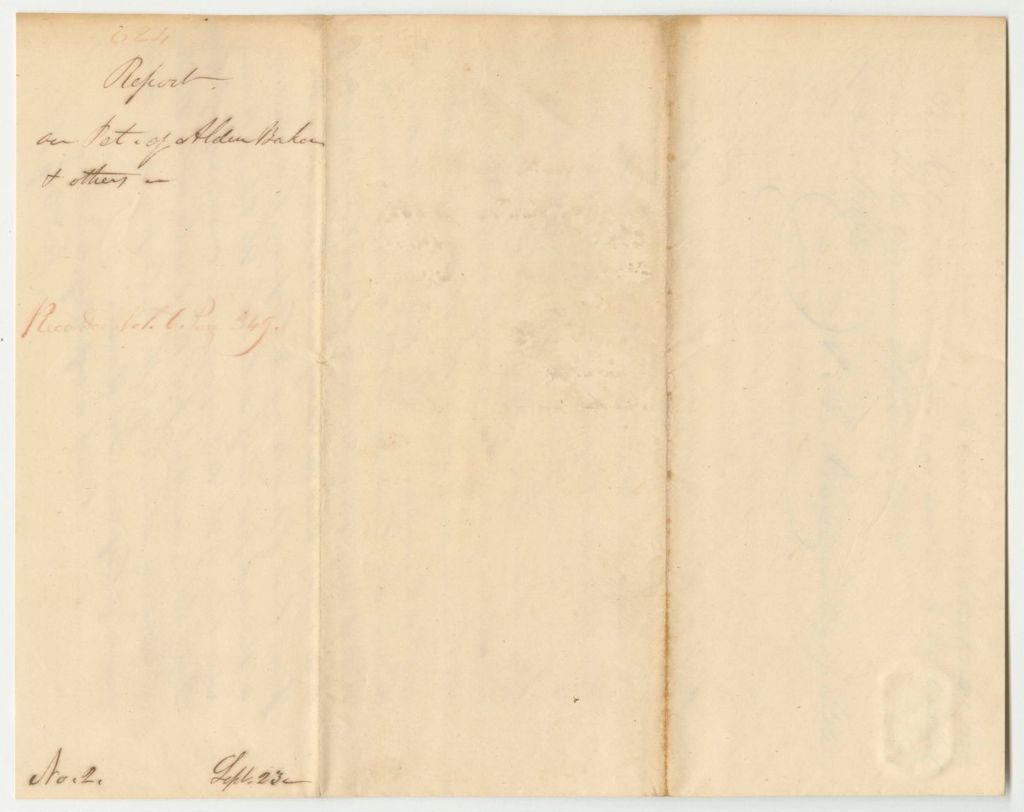 624
Report
on Pet. of Alden Baker
& others
Recorded Vol. 6. Page 349.
No. 2. Sept. 23